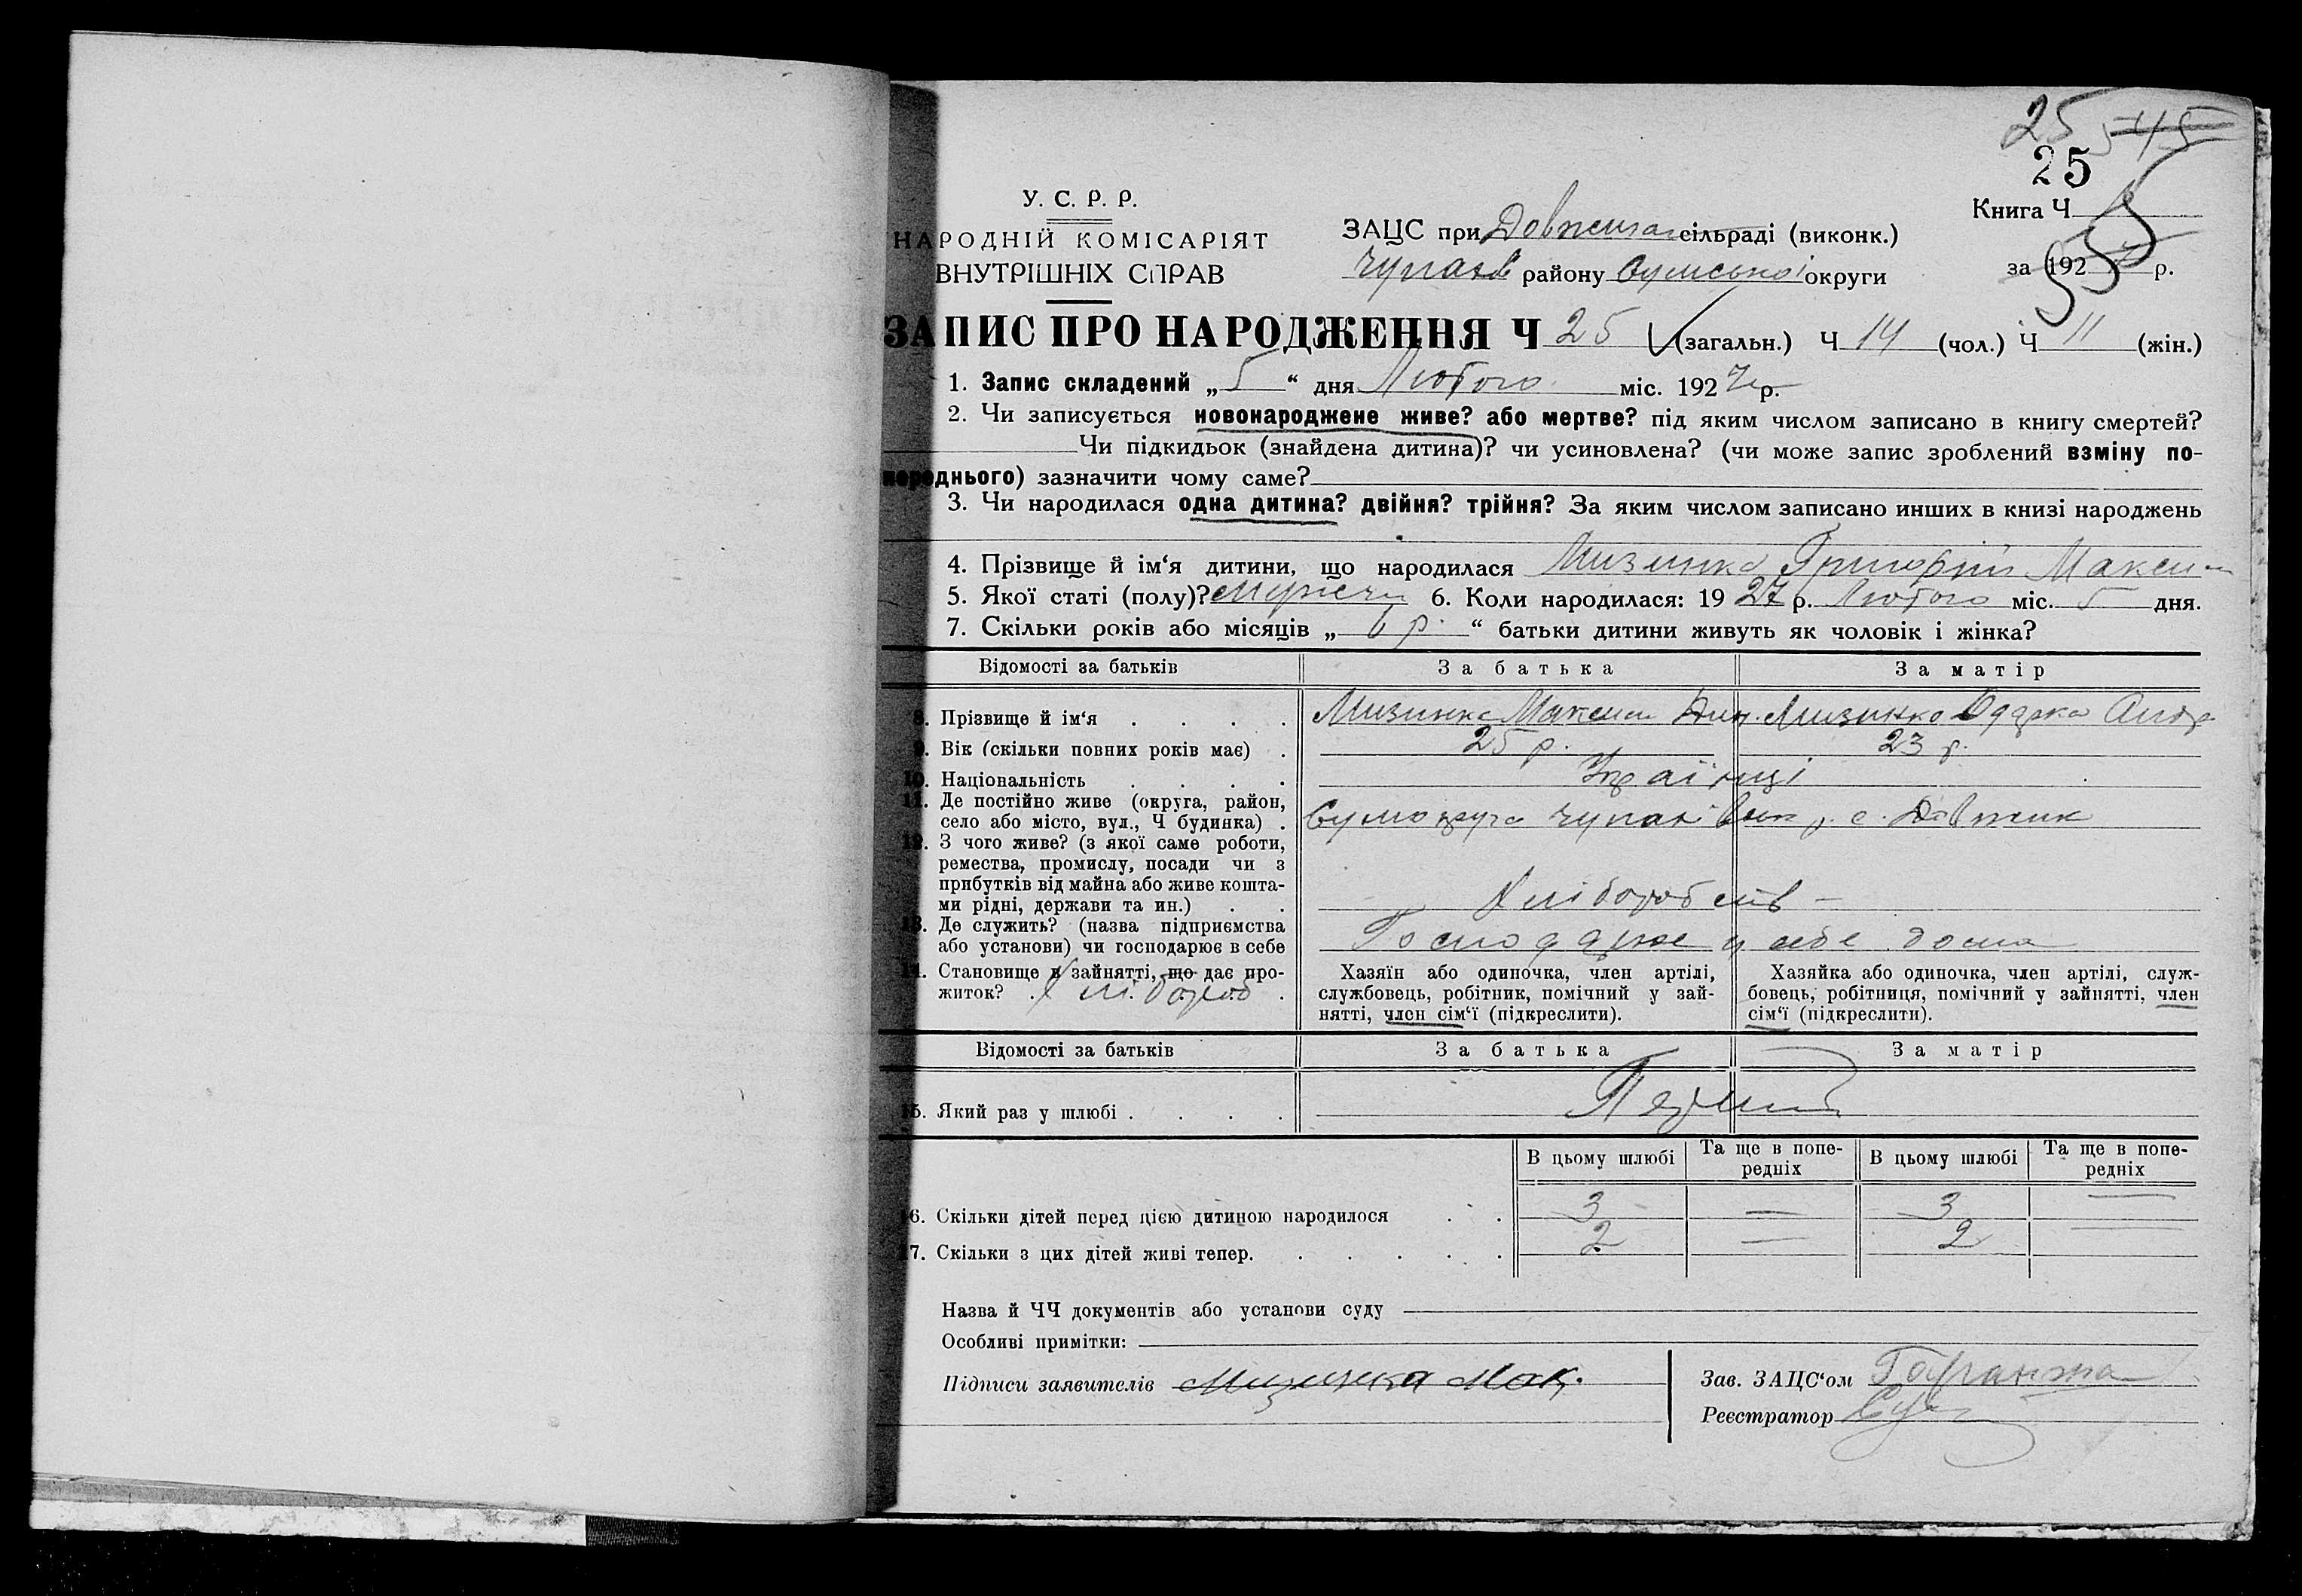 25 545
25
У. С. Р. Р.
НАРОДНІЙ КОМІСАРІЯТ
ВНУТРІШНІХ СПРАВ
Книга Ч
ЗАЦС при сільраді (виконк.)
Чупахів району Сумської округи
за 1927 р.
ЗАПИС ПРО НАРОДЖЕННЯ Ч 25 (загальн.) Ч 14 (чол.) Ч 11 (жін.)
1. Запис складений „ 5 “ дня Лютого міс. 1927 р.
2. Чи записується новонароджене живе? або мертве? під яким числом записано в книгу смертей?
Чи підкидьок (знайдена дитина)? чи усиновлена? (чи може запис зроблений взміну по-
переднього) зазначити чому саме?
3. Чи народилася одна дитина? двійня? трійня? За яким числом записано инших в книзі народжень
4. Прізвище й ім‘я дитини, що народилася Мизинко Григорій Максим
5. Якої статі (полу)? 6. Коли народилася: 1927 р. Лютого міс. 5 дня.
7. Скільки років або місяців „ 6 р. “ батьки дитини живуть як чоловік і жінка?
Відомості за батьків За батька За матір
8. Прізвище й ім‘я . . . . Мизинко Максим Мизинко Одарка Андр
9. Вік (скільки повних років має) . 25 р. 23 р.
10. Національність . . . . Українці
11. Де постійно живе (округа, район,
село або місто, вул., Ч будинка) . Сумокруга р. с. Довжик
12. З чого живе? (з якої саме роботи,
ремества, промислу, посади чи з
прибутків від майна або живе кошта-
ми рідні, держави та ин.) . . Хліборобств –
13. Де служить? (назва підприємства
або установи) чи господарює в себе Господарює у себе дома
14. Становище в зайнятті, що дає про-
житок? . Хлібороб .
Хазяїн або одиночка, член артілі,
службовець, робітник, помічний у зай-
нятті, член сім‘ї (підкреслити).
Хазяйка або одиночка, член артілі, служ-
бовець, робітниця, помічний у зайнятті, член
сім‘ї (підкреслити).
Відомості за батьків За батька За матір
15. Який раз у шлюбі . . . . Первий
В цьому шлюбі Та ще в попе-
редніх В цьому шлюбі Та ще в попе-
редніх
16. Скільки дітей перед цією дитиною народилося . . 3 — 3 —
17. Скільки з цих дітей живі тепер. . . . . . 2 — 2 —
Назва й ЧЧ документів або установи суду
Особливі примітки:
Підписи заявителів Мизинка Мак.
Зав. ЗАЦС‘ом Гаранжа
Реєстратор